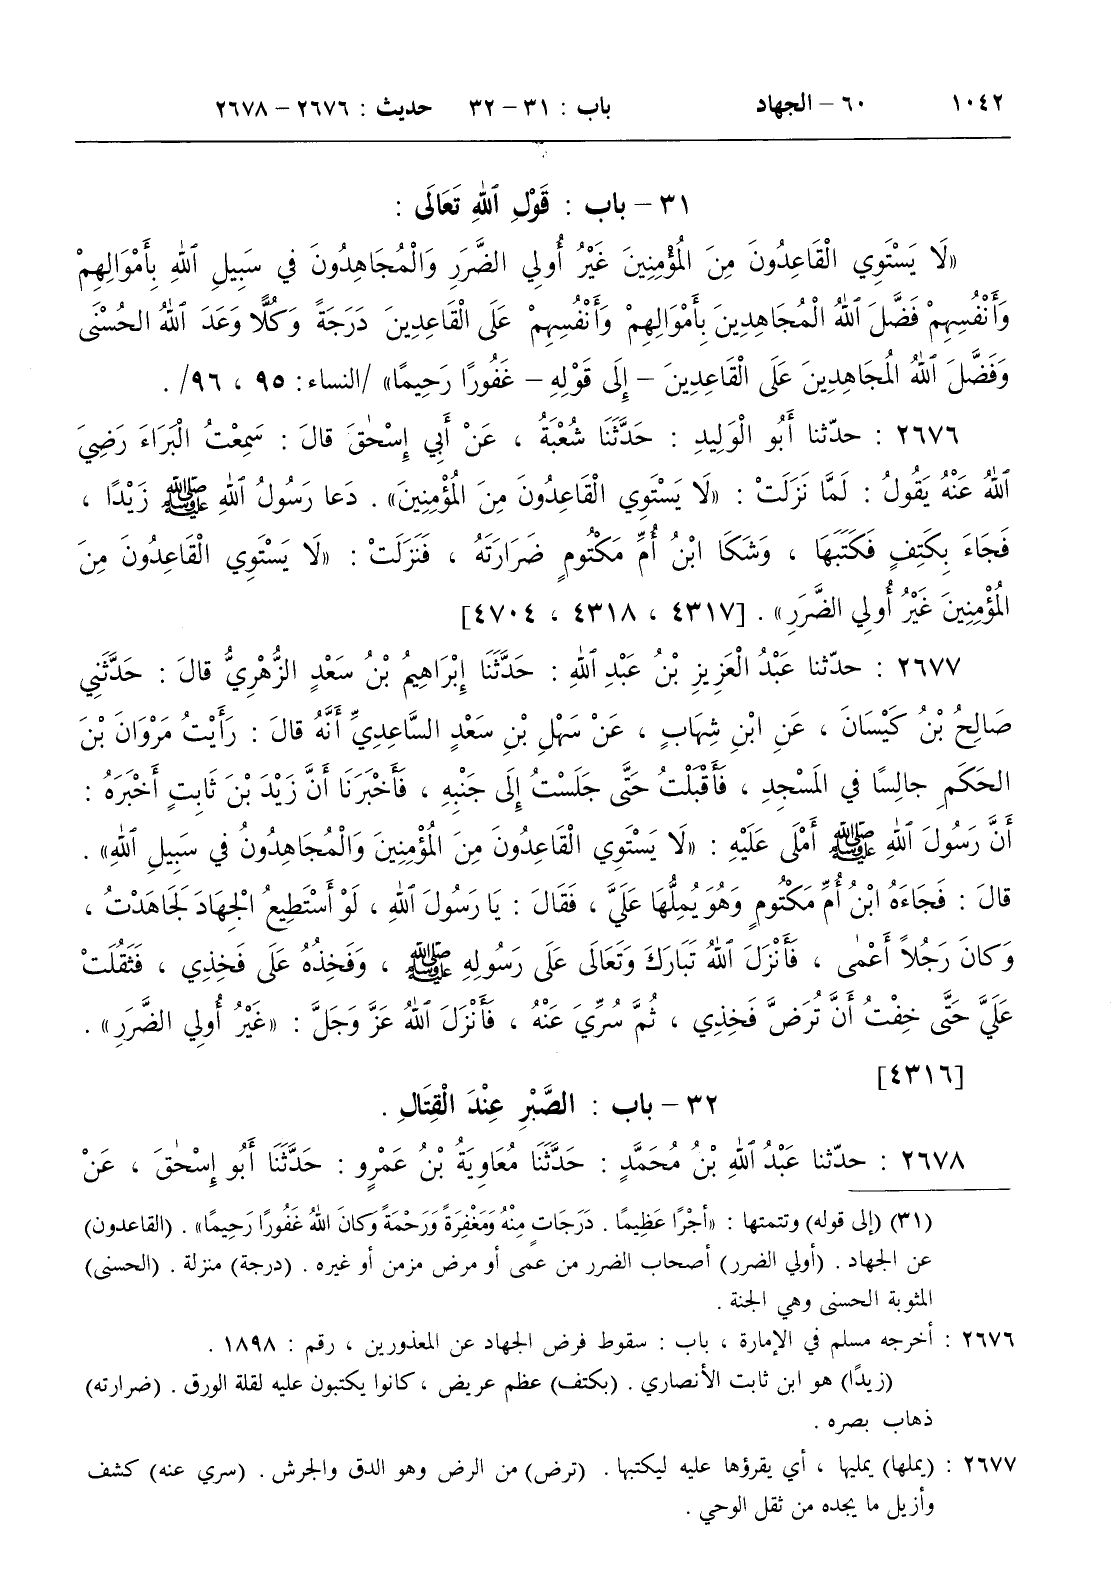 ١٠٤٢ ٦٠ – الجهاد باب : ٣١ – ٣٢ حديث : ٢٦٧٦ – ٢٦٧٨
٣١ – باب : قَوْلِ ٱللهِ تَعَالَى :
«لَا يَسْتَوِي الْقَاعِدُونَ مِنَ الْمُؤْمِنِينَ غَيْرُ أُولِي الضَّرَرِ وَالْمُجَاهِدُونَ في سَبِيلِ ٱللهِ بِأَمْوَالِهِمْ
وَأَنْفُسِهِمْ فَضَّلَ ٱللهُ الْمُجَاهِدِينَ بِأَمْوَالِهِمْ وَأَنْفُسِهِمْ عَلَى الْقَاعِدِينَ دَرَجَةً وَكُلًّا وَعَدَ ٱللهُ الحُسْنَى
وَفَضَّلَ ٱللهُ المُجَاهِدِينَ عَلَى الْقَاعِدِينَ – إِلَى قَوْلِهِ – غَفُورًا رَحِيمًا» /النساء: ٩٥ ، ٩٦/ .
٢٦٧٦ : حدّثنا أَبُو الْوَلِيدِ : حَدَّثَنَا شُعْبَةُ ، عَنْ أَبِي إِسْحٰقَ قالَ : سَمِعْتُ الْبَرَاءَ رَضِيَ
ٱللهُ عَنْهُ يَقُولُ : لَمَّا نَزَلَتْ : «لَا يَسْتَوِي الْقَاعِدُونَ مِنَ الْمُؤْمِنِينَ» . دَعا رَسُولُ ٱللهِ ﷺ زَيْدًا ،
فَجَاءَ بِكَتِفٍ فَكَتَبَهَا ، وَشَكَا ابْنُ أُمِّ مَكْتُومٍ ضَرَارَتَهُ ، فَنَزَلَتْ : «لَا يَسْتَوِي الْقَاعِدُونَ مِنَ
المُؤْمِنِينَ غَيْرُ أُولِي الضَّرَرِ» . [٤٣١٧ ، ٤٣١٨ ، ٤٧٠٤]
٢٦٧٧ : حدّثنا عَبْدُ الْعَزِيزِ بْنُ عَبْدِ ٱللهِ : حَدَّثَنَا إِبْرَاهِيمُ بْنُ سَعْدٍ الزُّهْرِيُّ قالَ : حَدَّثَنِي
صَالِحُ بْنُ كَيْسَانَ ، عَنِ ابْنِ شِهَابٍ ، عَنْ سَهْلِ بْنِ سَعْدٍ السَّاعِدِيِّ أَنَّهُ قالَ : رَأَيْتُ مَرْوَانَ بْنَ
الحَكَمِ جالِسًا في المَسْجِدِ ، فَأَقْبَلْتُ حَتَّى جَلَسْتُ إِلَى جَنْبِهِ ، فَأَخْبَرَنَا أَنَّ زَيْدَ بْنَ ثَابِتٍ أَخْبَرَهُ :
أَنَّ رَسُولَ ٱللهِ ﷺ أَمْلَى عَلَيْهِ : «لَا يَسْتَوِي الْقَاعِدُونَ مِنَ الْمُؤْمِنِينَ وَالْمُجَاهِدُونَ في سَبِيلِ ٱللهِ» .
قالَ : فَجَاءَهُ ابْنُ أُمِّ مَكْتُومٍ وَهُوَ يُمِلُّهَا عَلَيَّ ، فَقَالَ : يَا رَسُولَ ٱللهِ ، لَوْ أَسْتَطِيعُ الْجِهَادَ لَجَاهَدْتُ ،
وَكانَ رَجُلاً أَعْمٰى ، فَأَنْزَلَ ٱللهُ تَبَارَكَ وَتَعَالَى عَلَى رَسُولِهِ ﷺ ، وَفَخِذُهُ عَلَى فَخِذِي ، فَثَقُلَتْ
عَلَيَّ حَتَّى خِفْتُ أَنَّ تُرَضَّ فَخِذِي ، ثُمَّ سُرِّيَ عَنْهُ ، فَأَنْزَلَ ٱللهُ عَزَّ وَجَلَّ : «غَيْرُ أُولِي الضَّرَرِ» .
[٤٣١٦]
٣٢ – باب : الصَّبْرِ عِنْدَ الْقِتَالِ .
٢٦٧٨ : حدّثنا عَبْدُ ٱللهِ بْنُ مُحَمَّدٍ : حَدَّثَنَا مُعَاوِيَةُ بْنُ عَمْرٍو : حَدَّثَنَا أَبُو إِسْحٰقَ ، عَنْ
(٣١) (إلى قوله) وتتمتها : «أجْرًا عَظِيمًا . دَرَجَاتٍ مِنْهُ وَمَغْفِرَةً وَرَحْمَةً وَكانَ اللهُ غَفُورًا رَحِيمًا» . (القاعدون)
عن الجهاد . (أولي الضرر) أصحاب الضرر من عمى أو مرض مزمن أو غيره . (درجة) منزلة . (الحسنى)
المثوبة الحسنى وهي الجنة .
٢٦٧٦ : أخرجه مسلم في الإمارة ، باب : سقوط فرض الجهاد عن المعذورين ، رقم : ١٨٩٨ .
(زيدًا) هو ابن ثابت الأنصاري . (بكتف) عظم عريض ، كانوا يكتبون عليه لقلة الورق . (ضرارته)
ذهاب بصره .
٢٦٧٧ : (يملها) يمليها ، أي يقرؤها عليه ليكتبها . (ترض) من الرض وهو الدق والجرش . (سري عنه) كشف
وأزيل ما يجده من ثقل الوحي .